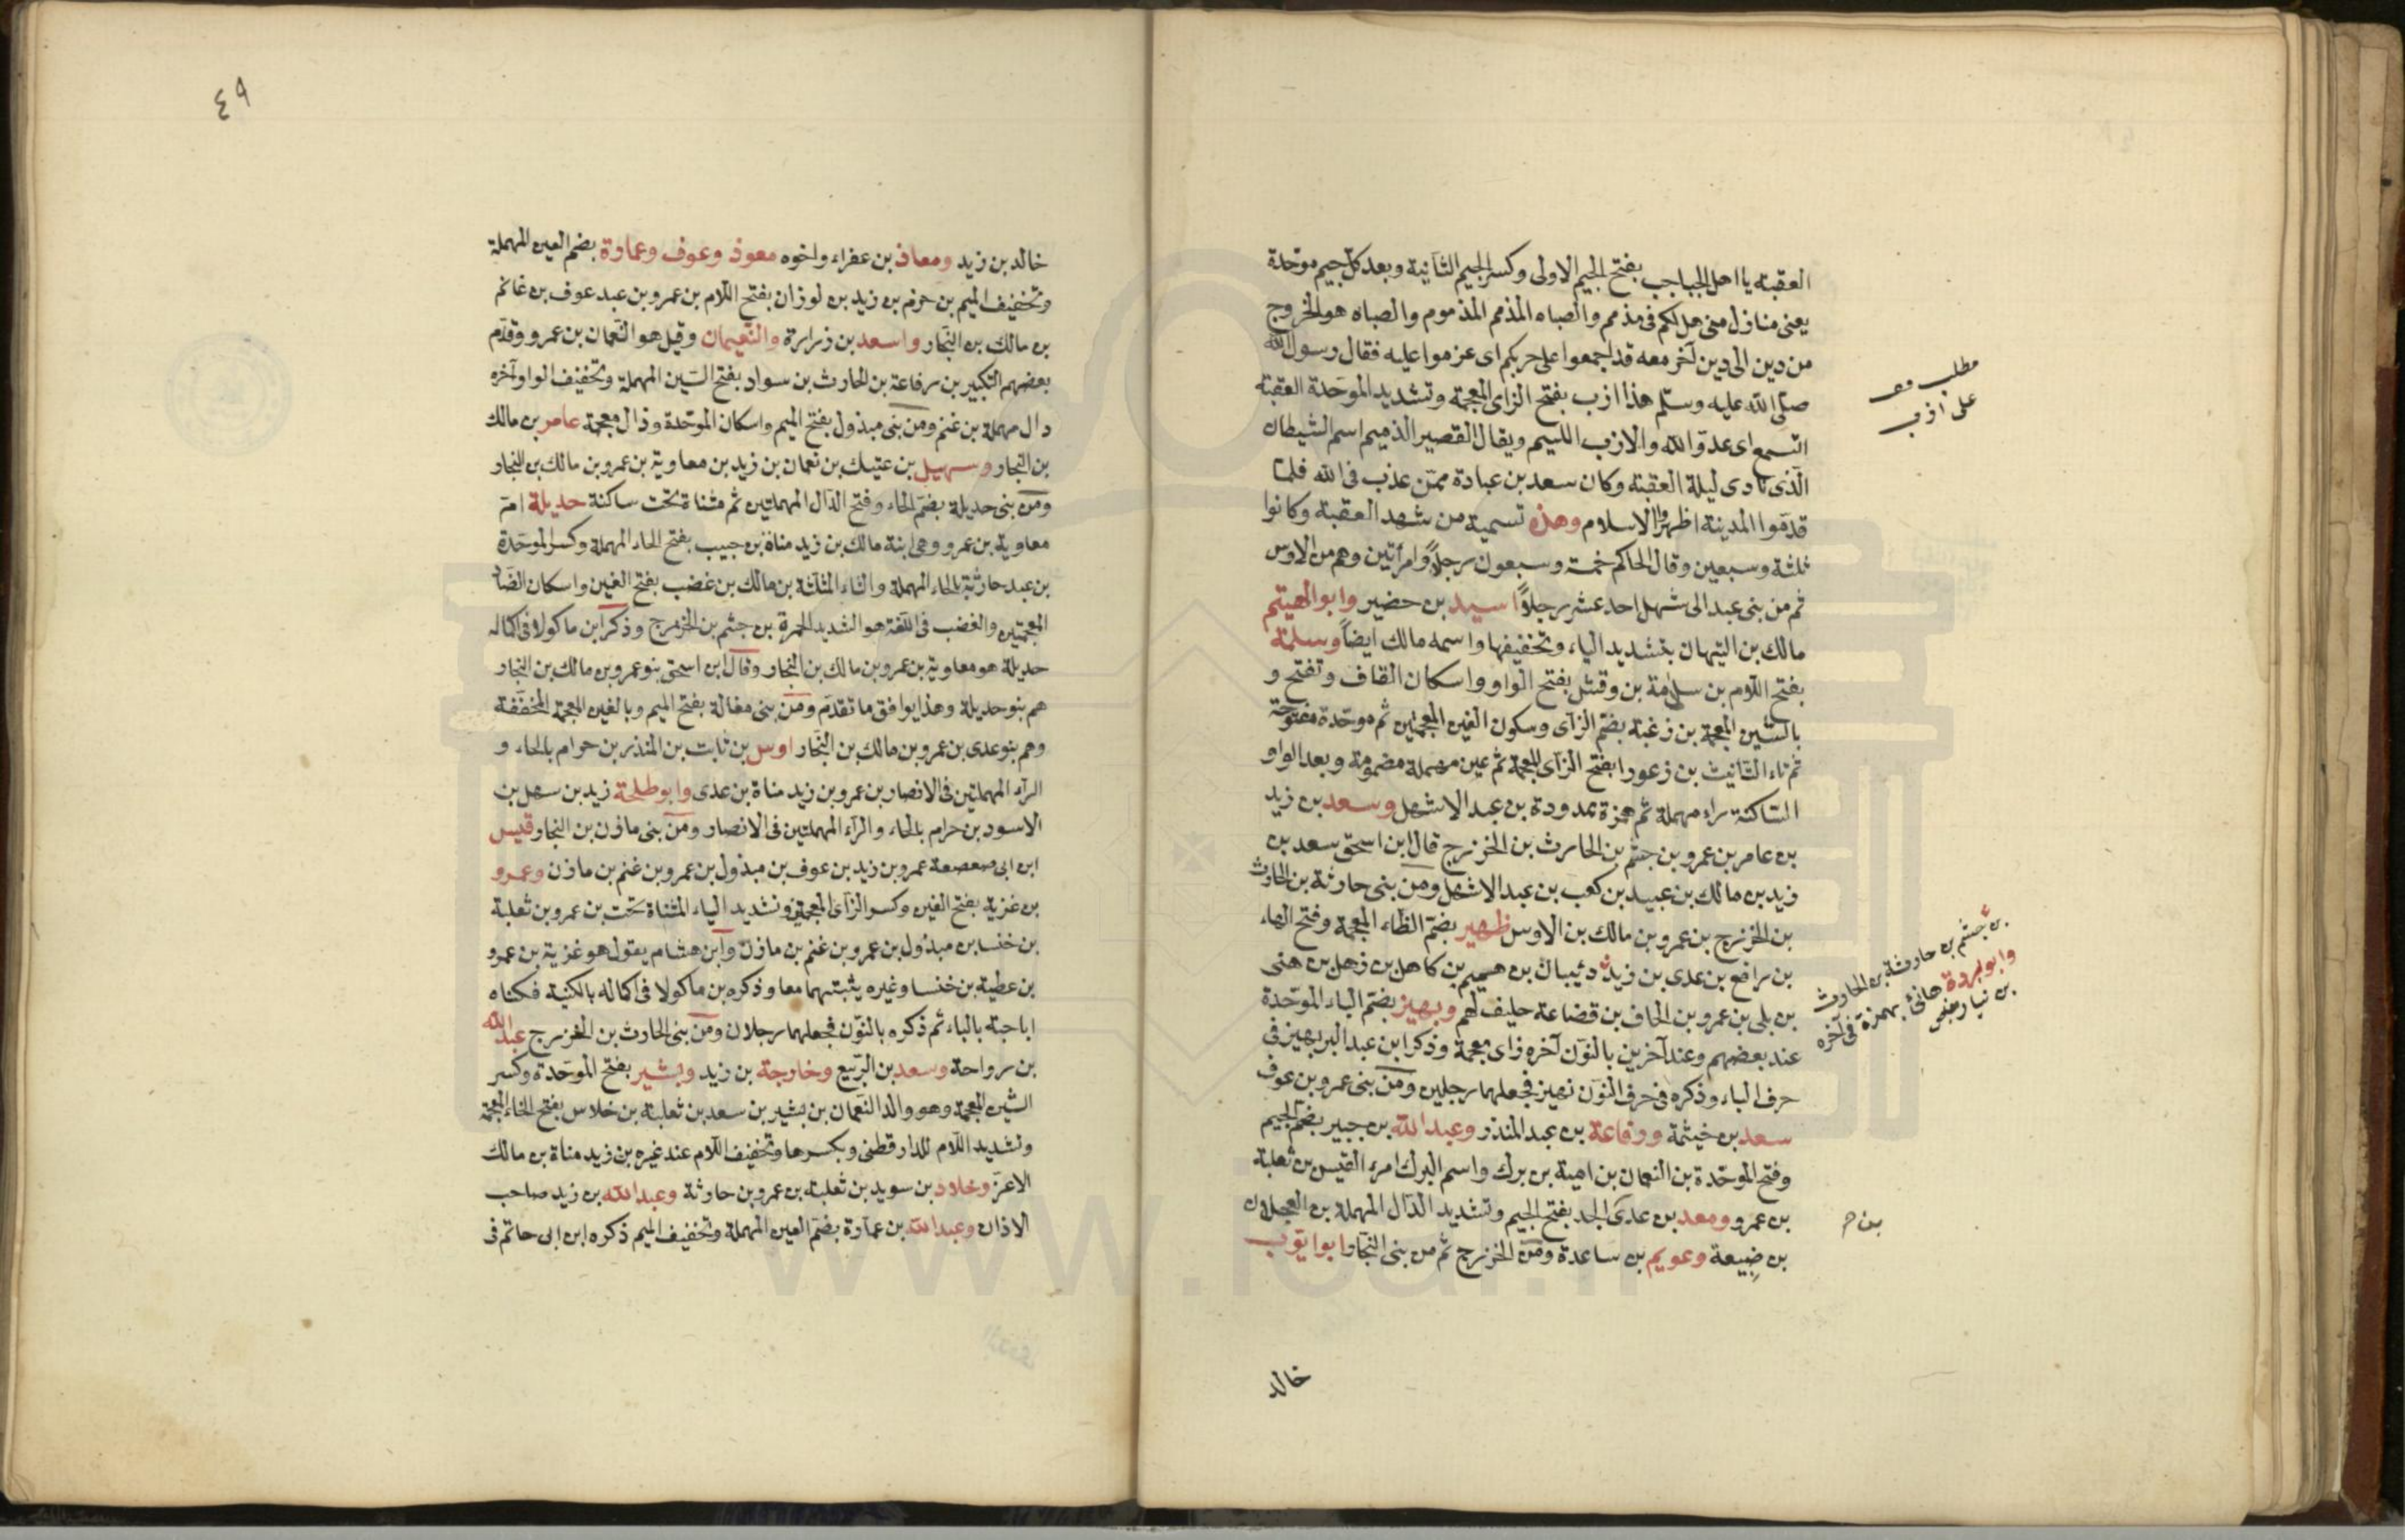 العقبة يا اهل الجباجب بفتح الجيم الاولى وكسر الجيم الثانية وبعد كل جيم موحدة
يعنى منازل منى هل لكم فى مذمم والصباه المذمم المذموم والصباه هو الخروج
من دين الى دين آخر معه قد اجمعوا على حربكم اى عزموا عليه فقال رسول الله
صلى الله عليه وسلم هذا ازب بفتح الزاى المعجمة وتشديد الموحدة العقبة
اتسمع اى عدو الله والازب اللئيم ويقال القصير الذميم اسم الشيطان
الذى نادى ليلة العقبة وكان سعد بن عبادة ممن عذب فى الله فلما
قدموا المدينة اظهروا الاسلام وهذه تسمية من شهد العقبة وكانوا
ثلثة وسبعين وقال الحاكم خمسة وسبعون رجلاً وامرأتين وهم من الاوس
ثم من بنى عبد الى شهل احد عشر رجلاً اسيد بن حضير وابو الهيثم
مالك بن التيهان بتشديد الياء وتخفيفها واسمه مالك ايضاً وسلمة
بفتح اللام بن سلامة بن وقش بفتح الواو واسكان القاف وتفتح و
بالشين المعجمة بن زغبة بضم الزاى وسكون الغين المعجمتين ثم موحدة مفتوحة
ثم تاء التانيث بن زعورا بفتح الزاى المعجمة ثم عين مهملة مضمومة وبعد الواو
الساكنة راء مهملة ثم همزة ممدودة بن عبد الاشهل وسعد بن زيد
بن عامر بن عمرو بن جشم بن الحارث بن الخزرج قال ابن اسحق سعد بن
زيد بن مالك بن عبيد بن كعب بن عبد الاشهل ومن بنى حارثة بن الحارث
بن الخزرج بن عمرو بن مالك بن الاوس ظهير بضم الظاء المعجمة وفتح الهاء
بن رافع بن عدى بن زيد دئيبان بن هيم بن كاهل بن ذهل بن هنى
بن بلى بن عمرو بن الحاف بن قضاعة حليف لهم وبهيز بضم الباء الموحدة
عند بعضهم وعند آخرين بالنون آخره زاى معجمة وذكر ابن عبد البر بهيز فى
حرف الباء وذكره فى حرف النون نهيز فجعلهما رجلين ومن بنى عمرو بن عوف
سعد بن خيثمة ورفاعة بن عبد المنذر وعبد الله بن جبير بضم الجيم
وفتح الموحدة بن النعمان بن امية بن برك واسم البرك امرء القيس بن ثعلبة
بن عمرو ومعد بن عدى الجد بفتح الجيم وتشديد الدال المهملة بن العجلان
بن ضبيعة وعويم بن ساعدة ومن الخزرج ثم من بنى النجار ابو ايوب
خالد
مطلب
على ازب
بن جشم بن حارثة بن الحارث
وابو بردة هانئ بهمزة فى آخره
بن نيار
بن ح
٤٩
خالد بن زيد ومعاذ بن عفراء واخوه معوذ وعوف وعمارة بضم العين المهملة
وتخفيف الميم بن حزم بن زيد بن لوزان بفتح اللام بن عمرو بن عبد عوف بن غانم
بن مالك بن النجار واسعد بن زرارة والنعيمان وقيل هو النعمان بن عمرو وقدم
بعضهم التكبير بن رفاعة بن الحارث بن سواد بفتح السين المهملة وتخفيف الواو آخره
دال مهملة بن غنم ومن بنى مبذول بفتح الميم واسكان الموحدة وذال معجمة عامر بن مالك
بن النجار وسهيل بن عتيك بن نعمان بن زيد بن معاوية بن عمرو بن مالك بن النجار
ومن بنى حديلة بضم الحاء وفتح الدال المهملتين ثم مثناة تحت ساكنة حديلة ام
معاوية بن عمرو وهى ابنة مالك بن زيد مناة بن حبيب بفتح الحاء المهملة وكسر الموحدة
بن عبد حارثة بالحاء المهملة والثاء المثلثة بن مالك بن غضب بفتح الغين واسكان الضاد
المعجمتين والغضب فى اللغة هو الشديد الحمرة بن جشم بن الخزرج وذكر ابن ماكولا فى اكماله
حديلة هو معاوية بن عمرو بن مالك بن النجار وقال ابن اسحق بنو عمرو بن مالك بن النجار
هم بنو حديلة وهذا يوافق ما تقدم ومن بنى مغالة بفتح الميم وبالغين المعجمة المخففة
وهم بنو عدى بن عمرو بن مالك بن النجار اوس بن ثابت بن المنذر بن حرام بالحاء و
الراء المهملتين فى الانصار بن عمرو بن زيد مناة بن عدى وابو طلحة زيد بن سهل بن
الاسود بن حرام بالحاء والراء المهملتين فى الانصار ومن بنى مازن بن النجار قيس
ابن ابى صعصعة عمرو بن زيد بن عوف بن مبذول بن عمرو بن غنم بن مازن وعمرو
بن غزية بفتح الغين وكسر الزاى المعجمتين وتشديد الياء المثناة تحت بن عمرو بن ثعلبة
بن خنسا بن مبذول بن عمرو بن غنم بن مازن وابن هشام يقول هو غزية بن عمرو
بن عطية بن خنسا وغيره يثبتهما معا وذكره بن ماكولا فى اكماله بالكنية فكناه
اباحبة بالباء ثم ذكره بالنون فجعلهما رجلان ومن بنى الحارث بن الخزرج عبد الله
بن رواحة وسعد بن الربيع وخارجة بن زيد وبشير بفتح الموحدة وكسر
الشين المعجمة وهو والد النعمان بن بشير بن سعد بن ثعلبة بن خلاس بفتح الخاء المعجمة
وتشديد اللام للدارقطنى وبكسرها وتخفيف اللام عند غيره بن زيد مناة بن مالك
الاغر وخلاد بن سويد بن ثعلبة بن عمرو بن حارثة وعبد الله بن زيد صاحب
الاذان وعبد الله بن عمارة بضم العين المهملة وتخفيف الميم ذكره ابن ابى حاتم فى